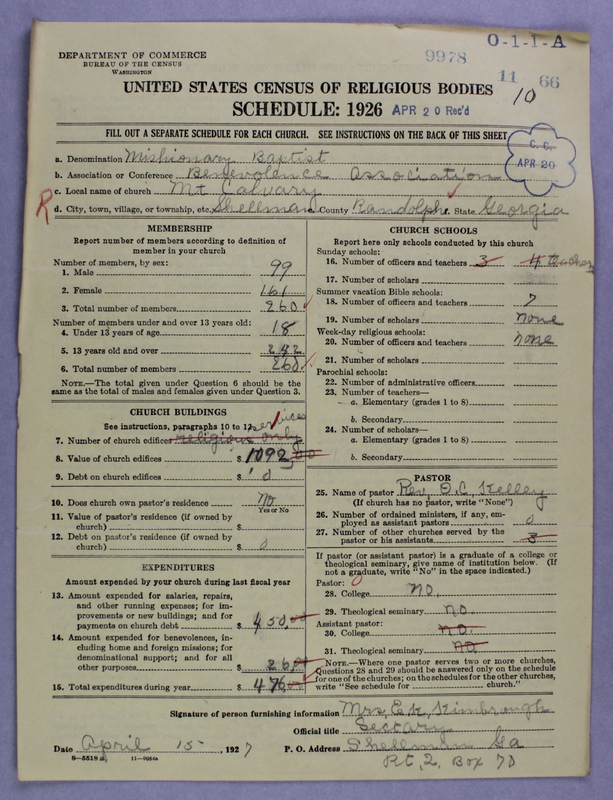 O-1-1-A
DEPARTMENT OF COMMERCE
BUREAU OF THE CENSUS
WASHINGTON
9978
11 66
UNITED STATES CENSUS OF RELIGIOUS BODIES
10
SCHEDULE: 1926 APR 20 Rec'd
FILL OUT A SEPARATE SCHEDULE FOR EACH CHURCH. SEE INSTRUCTIONS ON THE BACK OF THIS SHEET
C. C.
APR 20
a. Denomination Mishionary Baptist
b. Association or Conference Benevolence Association
c. Local name of church Mt Calvary
R d. City, town, village, or township, etc. Shellman County Randolph State Georgia
MEMBERSHIP
Report number of members according to definition of
member in your church
Number of members, by sex:
1. Male 99
2. Female 161
3. Total number of members 260
Number of members under and over 13 years old:
4. Under 13 years of age 18
5. 13 years old and over 242
6. Total number of members 260
NOTE.—The total given under Question 6 should be
same as the total of males and females given under Question 3.
CHURCH BUILDINGS
See instructions, paragraphs 10 to 12 services
7. Number of church edifices 1 religious only
8. Value of church edifices $ 1092,00
9. Debt on church edifices $ 0
10. Does church own pastor's residence no
Yes or No
11. Value of pastor's residence (if owned by
church) $
12. Debt on pastor's residence (if owned by
church) $ 0
EXPENDITURES
Amount expended by your church during last fiscal year
13. Amount expended for salaries, repairs,
and other running expenses; for im-
provements or new buildings; and for
payments on church debt $ 450.00
14. Amount expended for benevolences, in-
cluding home and foreign missions; for
denominational support; and for all
other purposes 26.00
15. Total expenditures during year $ 476.00
CHURCH SCHOOLS
Report here only schools conducted by this church
Sunday schools:
16. Number of officers and teachers 3 4 teacher
17. Number of scholars
Summer vacation Bible schools:
18. Number of officers and teachers 7
19. Number of scholars none
Week-day religious schools:
20. Number of officers and teachers none
21. Number of scholars
Parochial schools:
22. Number of administrative officers
23. Number of teachers—
a. Elementary (grades 1 to 8)
b. Secondary
24. Number of scholars—
a. Elementary (grades 1 to 8)
b. Secondary
PASTOR
25. Name of pastor Rev. O.C. Kelley
(If church has no pastor, write "None")
26. Number of ordained ministers, if any, em-
ployed as assistant pastors 0
27. Number of other churches served by the
pastor or his assistants 3
If pastor (or assistant pastor) is a graduate of a college or
theological seminary, give name of institution below. (If
not a graduate, write "No" in the space indicated.)
Pastor: 0
28. College no.
29. Theological seminary no.
Assistant pastor:
30. College no.
31. Theological seminary no
NOTE.—Where one pastor serves two or more churches,
Questions 28 and 29 should be answered only on the schedule
for one of the churches; on the schedules for the other churches,
write "See schedule for church."
Signature of person furnishing information Mrs, E.K. Kimbrough
Official title Sectary
Date April 15, 1927 P. O. Address Shellman Ga
8—5518 11—9654a Rt, 2, Box 70